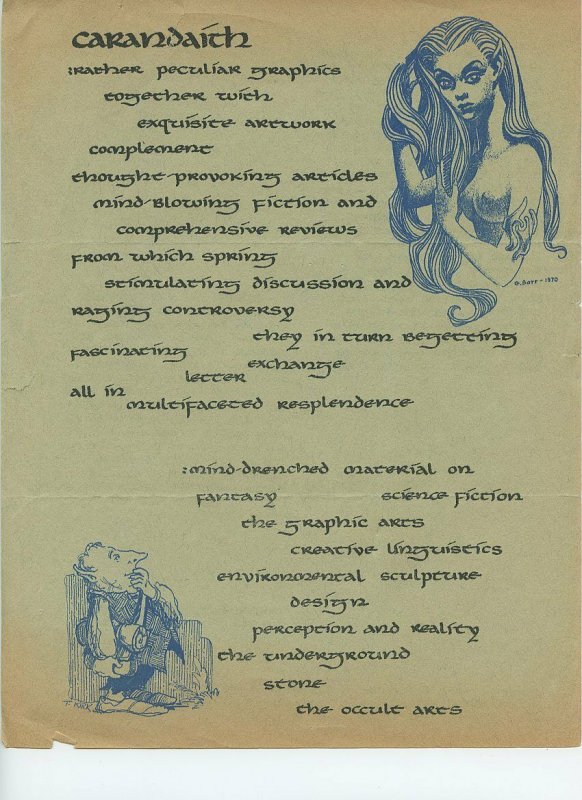 carandaith
:rather peculiar graphics
together with
exquisite artwork
complement
thought-provoking articles
mind-blowing fiction and
comprehensive reviews
from which spring
stimulating discussion and
G. Barr - 1970
raging controversy
they in turn begetting
fascinating
exchange
letter
all in
multifaceted resplendence
:mind-drenched material on
fantasy science fiction
the graphic arts
creative linguistics
environmental sculpture
design
perception and reality
the underground
stone
the occult arts
T. KIRK